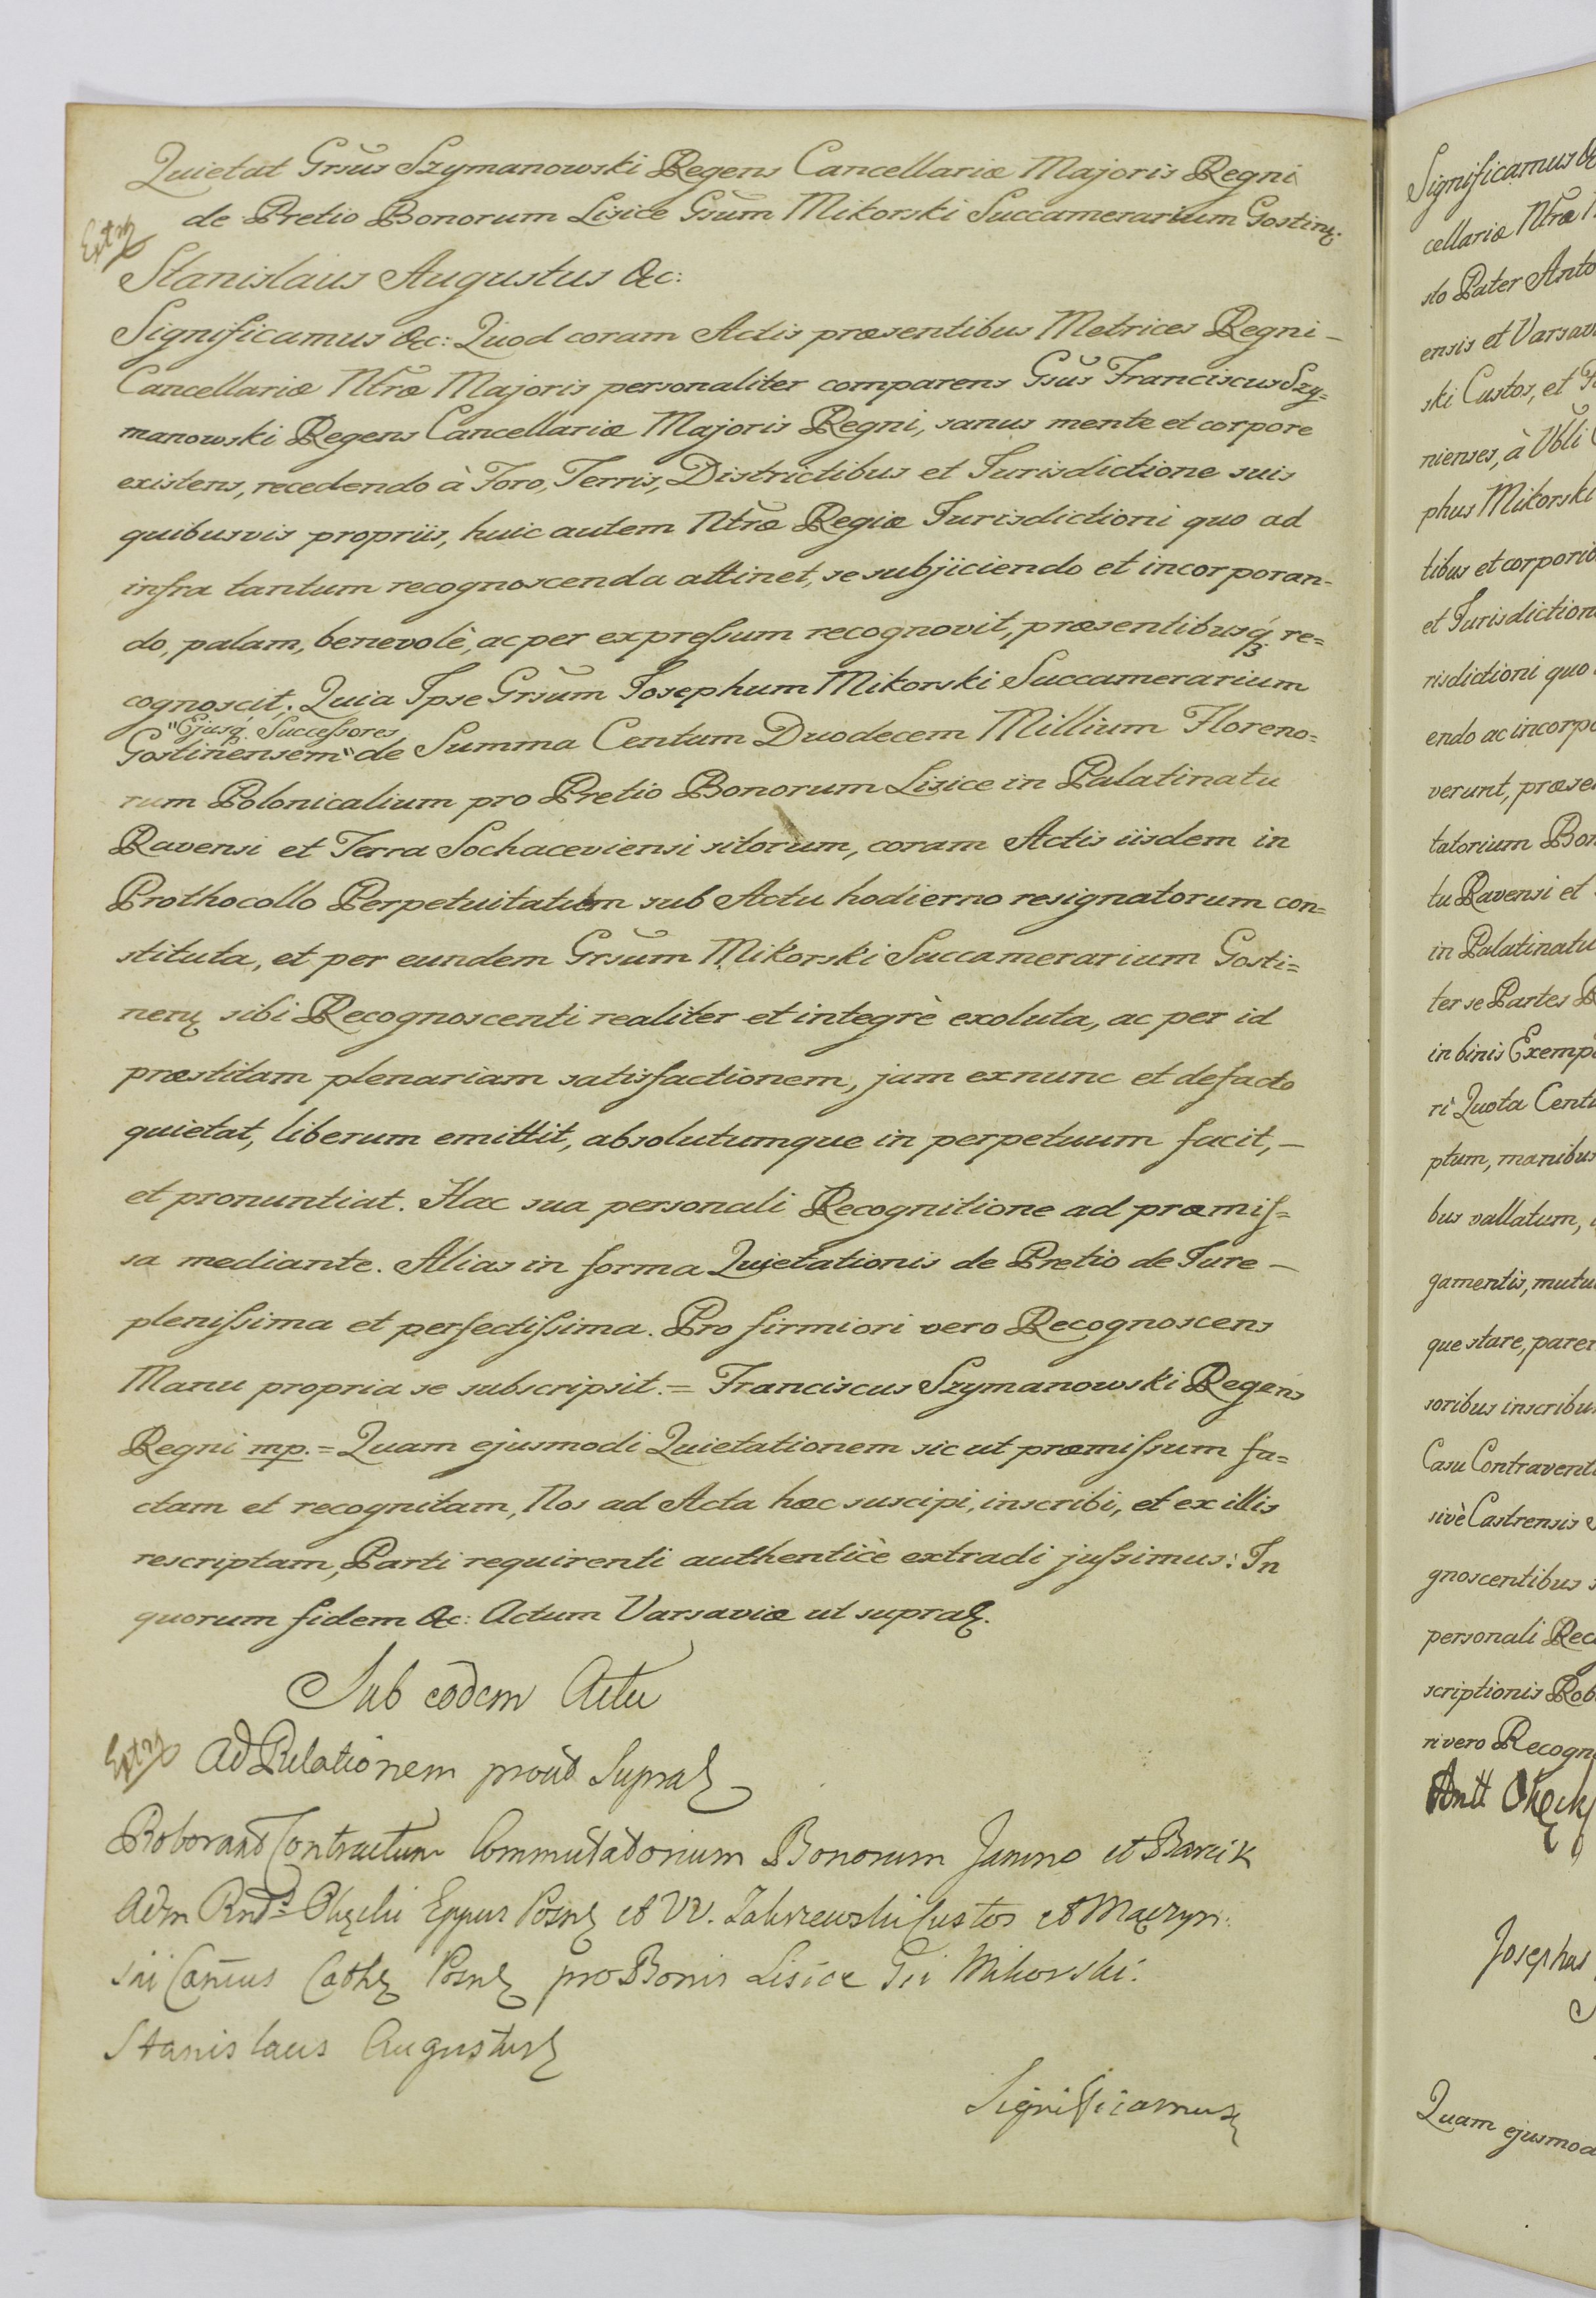 Quietat Grsus Szymanowski Regens Cancellariæ Majoris Regni
de Pretio Bonorum Lisice Gsum Mikorski Succamerarium Gostinen.
Extr
Stanislaus Augustus &c:
Significamus &c: Quod coram Actis præsentibus Metrices Regni –
Cancellariæ Ntræ Majoris personaliter comparens Gsus Franciscus Szy=
manowski Regens Cancellariæ Majoris Regni, sanus mente et corpore
existens, recedendo à Foro, Terris, Districtibus et Jurisdictione suis
quibusvis propriis, huic autem Ntræ Regiæ Jurisdictioni quo ad
infra tantum recognoscenda attinet, se subjiciendo et incorporan-
do, palam, benevolè, ac per expressum recognovit, præsentibusq; re=
cognoscit; Quia Ipse Grsum Josephum Mikorski Succamerarium
"Ejusq. Successores
Gostinensem" de Summa Centum Duodecem Millium Floreno=
rum Polonicalium pro Pretio Bonorum Lisice in Palatinatu
Ravensi et Terra Sochaceviensi sitorum, coram Actis iisdem in
Prothocollo Perpetuitatum sub Actu hodierno resignatorum con=
stituta, et per eundem Grsum Mikorski Succamerarium Gosti=
nen sibi Recognoscenti realiter et integrè exoluta, ac per id
præstitam plenariam satisfactionem, jam exnunc et defacto
quietat, liberum emittit, absolutumque in perpetuum facit, –
et pronuntiat. Hac sua personali Recognitione ad præmis=
sa mediante. Alias in forma Quietationis de Pretio de Jure –
plenissima et perfectissima. Pro firmiori vero Recognoscens
Manu propria se subscripsit. = Franciscus Szymanowski Regens
Regni mp. = Quam ejusmodi Quietationem sic ut præmissum fa=
ctam et recognitam, Nos ad Acta hæc suscipi, inscribi, et ex illis
rescriptam, Parti requirenti authenticè extradi jussimus: In
quorum fidem &c: Actum Varsaviæ ut supra
Sub eodem Actu
Extr
Ad Relationem prout Supra
Roborant Contractum Commutatorium Bonorum Janino et Barcik
Adm Rnds Okęcki Eppus Posn et VV. Zakrzewski Custos et
Canicus Cath Posn pro Bonis Lisice Gsi Mikorski.
Stanislaus Augustus
Significamus
Significamus &
cellariæ Ntræ
sto Pater Anto
ensis et Varsav
ski Custos, et
nienses, à Vbli
phus Mikorski
tibus et corporib
et Jurisdiction
risdictioni quo
endo ac incorp
verunt, præse
tatorium Bon
tu Ravensi et
in Palatinatu
ter se Partes
in binis Exemp
ri Quota Cent
ptum, manibus
bus vallatum,
gamentis, mutu
que stare, parer
soribus inscribu
Casu Contravent
sivè Castrensis
gnoscentibus
personali Rec
scriptionis Rob
ri vero Recogn
Antt Okęck
Josephus
Quam ejusmod